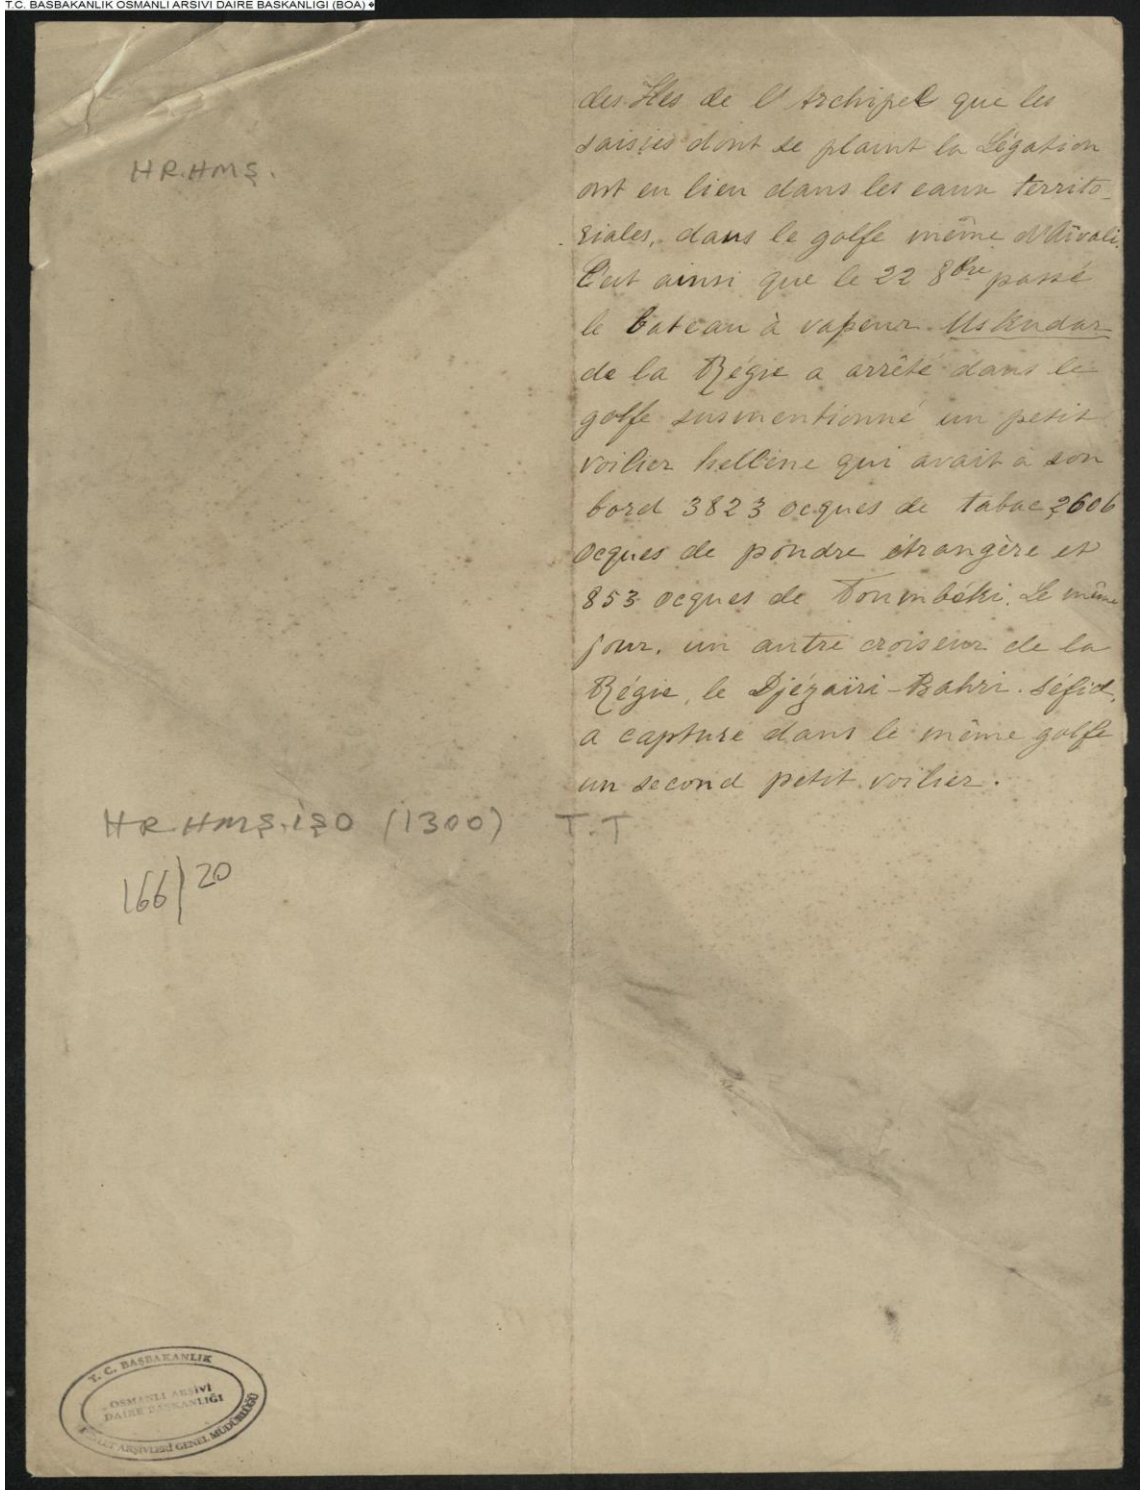 T.C. BASBAKANLIK OSMANLI ARSIVI DAIRE BASKANLIGI (BOA)
des Iles de l'Archipel que les
saisies dont se plaint la Légation
HR.HMŞ.
ont eu lieu dans les eaux territo-
riales, dans le golfe même d'Aïvali.
C'est ainsi que le 22 8bre passé
le bateau à vapeur Uskudar
de la Régie a arrêté dans le
golfe susmentionné un petit
voilier hellène qui avait à son
bord 3823 ocques de tabac, 2606
ocques de poudre étrangère et
853 ocques de Toumbéki. Le même
jour, un autre croiseur de la
Régie, le Djézaïri-Bahri-Séfid,
a capturé dans le même golfe
un second petit voilier.
HR.HMŞ.İŞO (1300) T.T
166/20
T. C. BAŞBAKANLIK
OSMANLI ARŞİVİ
DAİRE BAŞKANLIĞI
DEVLET ARŞİVLERİ GENEL MÜDÜRLÜĞÜ